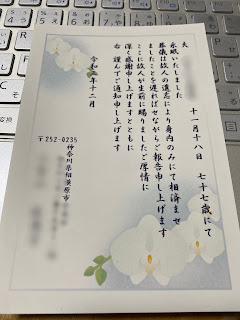 夫 十一月十八日 七十七歳にて
永眠いたしました
葬儀は故人の遺志により身内のみにて相済ませ
ましたことを遅ればせながらご報告申し上げます
ここに故人が生前に賜りましたご厚情に
深く感謝申し上げますとともに
右 謹んでご通知申し上げます
令和三年十二月
〒252-0235
神奈川県相模原市